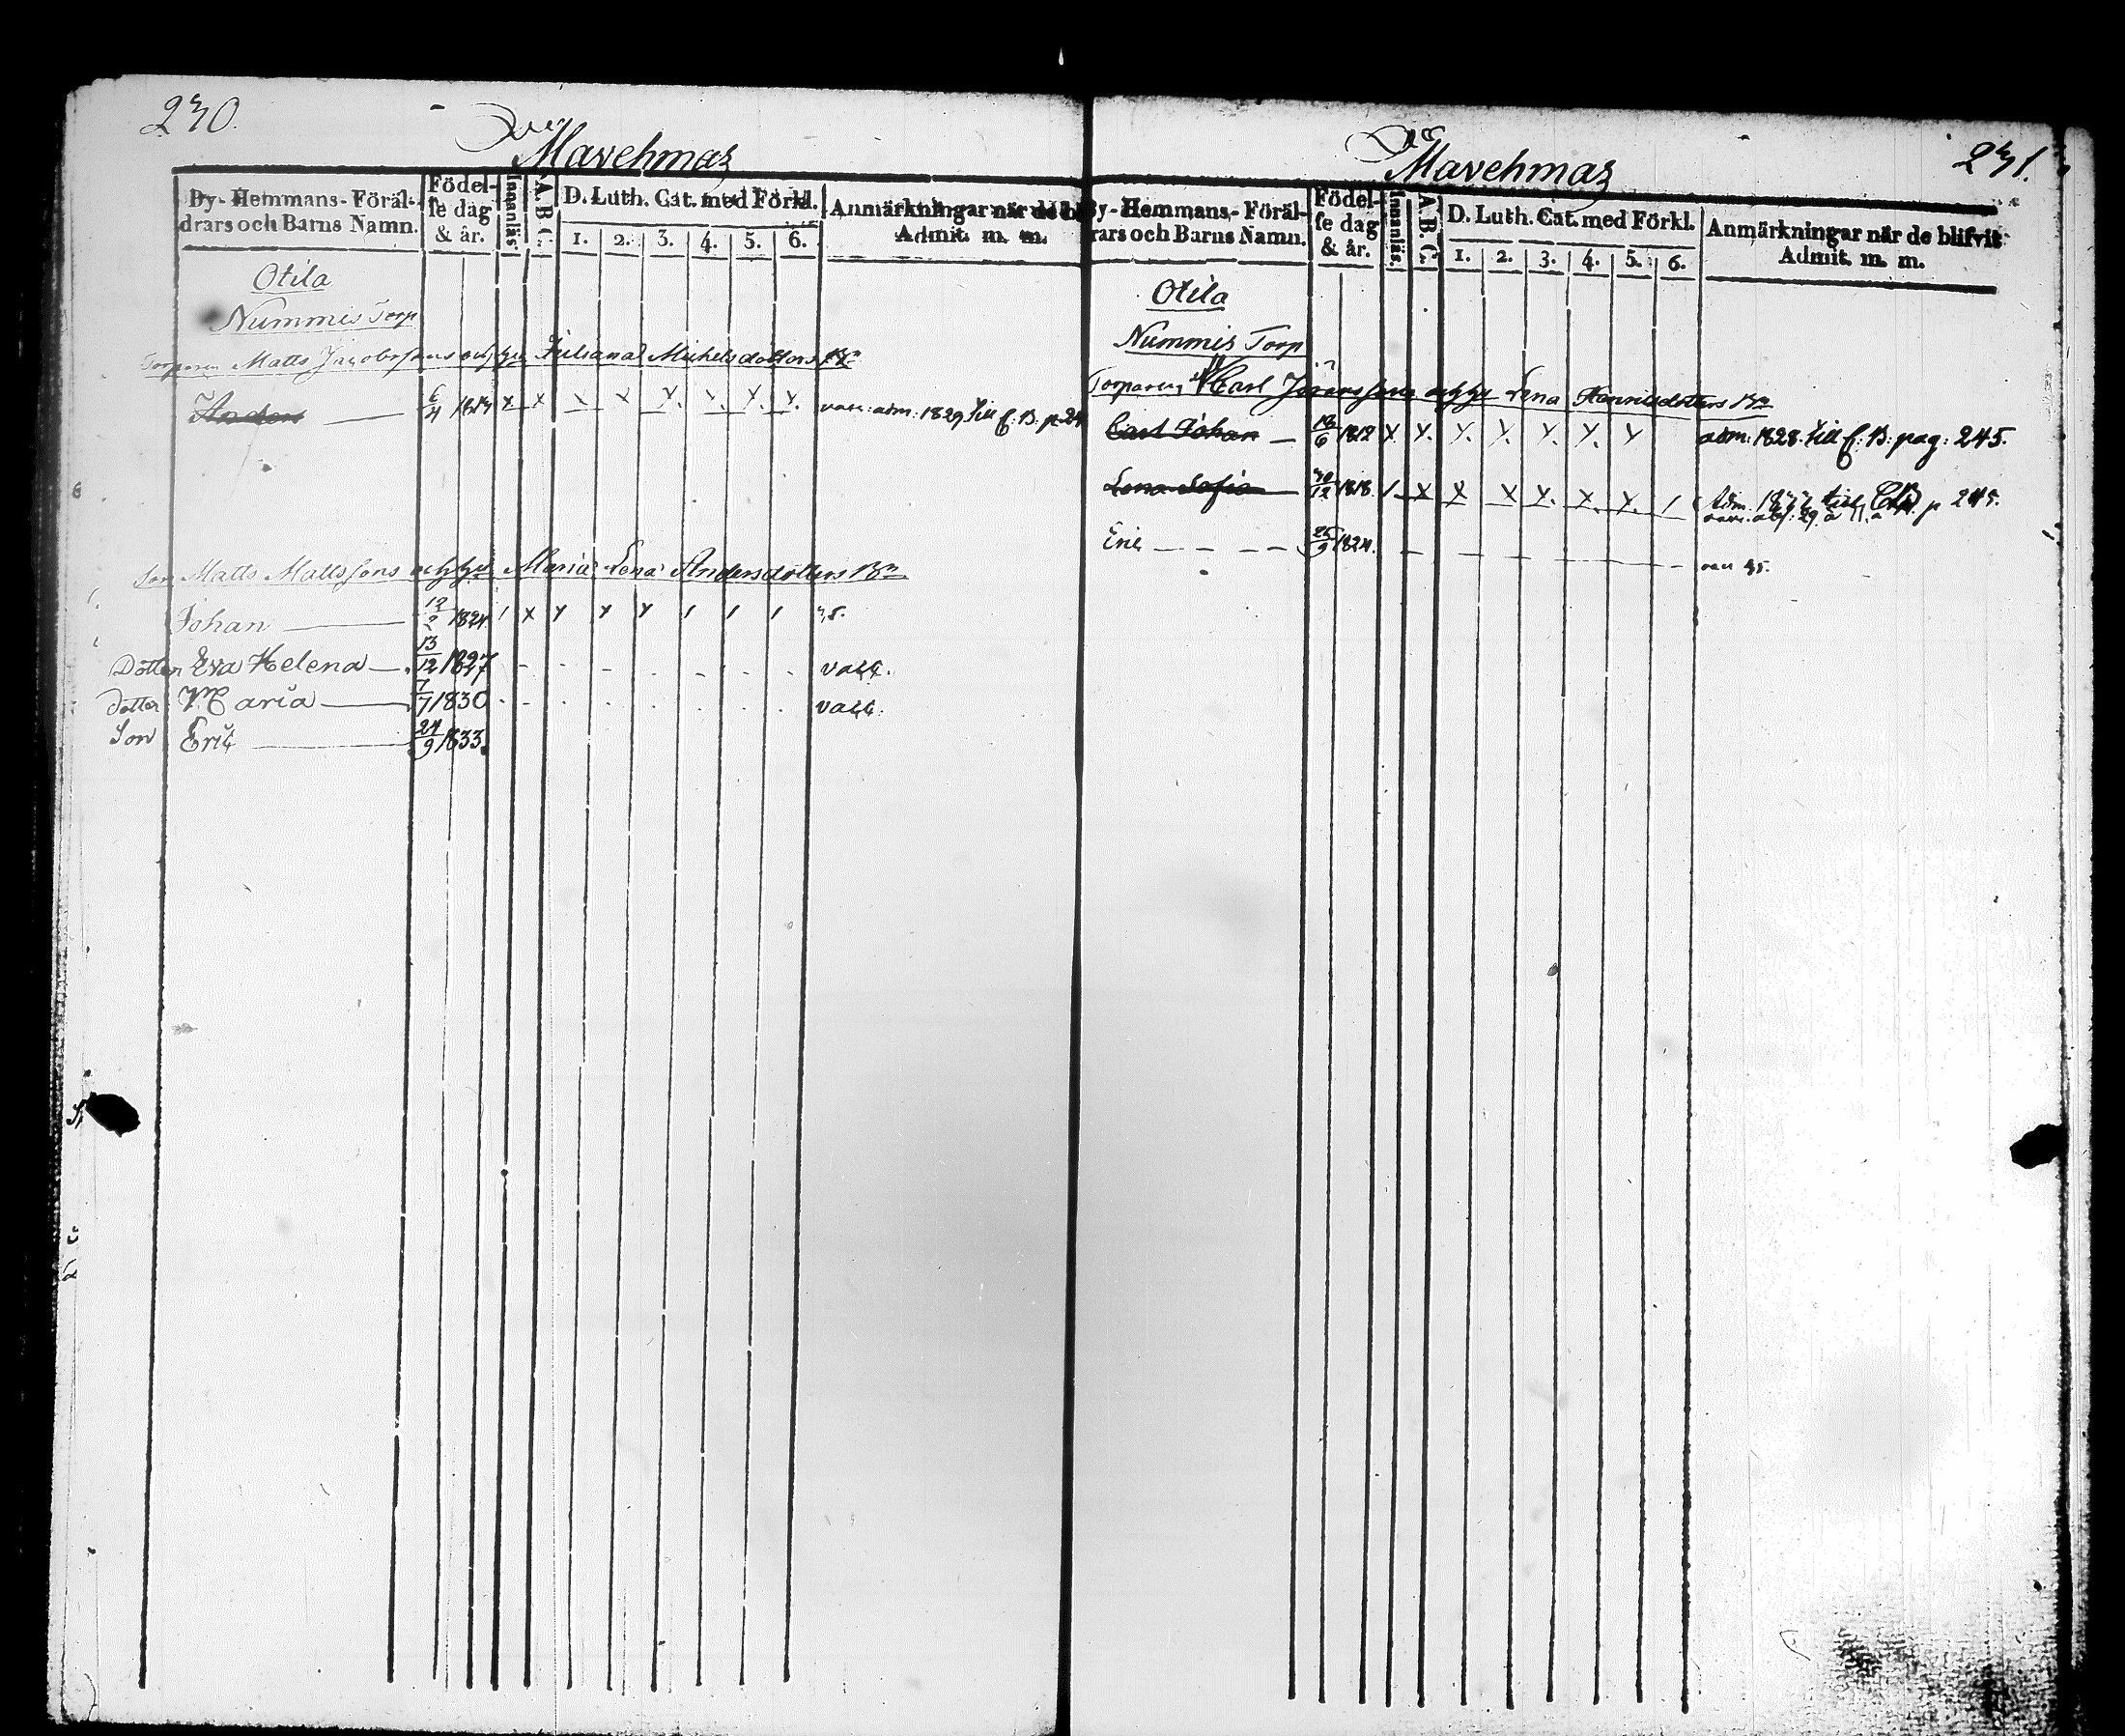 230.
Mavehmaz
By- Hemmans- Föräl-
drars och Barns Namn.
Födel-
se dag
& år.
Innanläs.
A. B. C.
D. Luth. Cat. med Förkl.
1. 2. 3. 4. 5. 6.
Anmärkningar när de b
Admit. m. m.
Otila
Nummis Torp
Torparen Matts Jacobssons och hu Juliana Michelsdotters Bn
Anders 6/4 1814 x x x x x. x. x. x. adm: 1829 till C: B: p. 24
Son Matts Matts sons och hu Maria Lena Andersdotters Bn
Johan 12/2 1824 / x y y y / / /
Dotter Eva Helena 13/12 1827 vacc.
Dotter Maria 7/7 1830 vacc.
Son Eric 24/9 1833.
231.
Mavehmaz
By- Hemmans- Föräl-
rars och Barns Namn.
Födel-
se dag
& år.
Innanläs.
A. B. C.
D. Luth. Cat. med Förkl.
1. 2. 3. 4. 5. 6.
Anmärkningar när de blifvit
Admit. m. m.
Otila
Nummis Torp
Torparen Carl och hu Lena Henricsdotters Bn
Carl Johan 1812 x. x. x. x. x. x. x adm: 1828. till C: B: pag: 245.
Lena Sofia 1818. / x x x x. x. x. / Adm. till p 245.
Eric 1824.